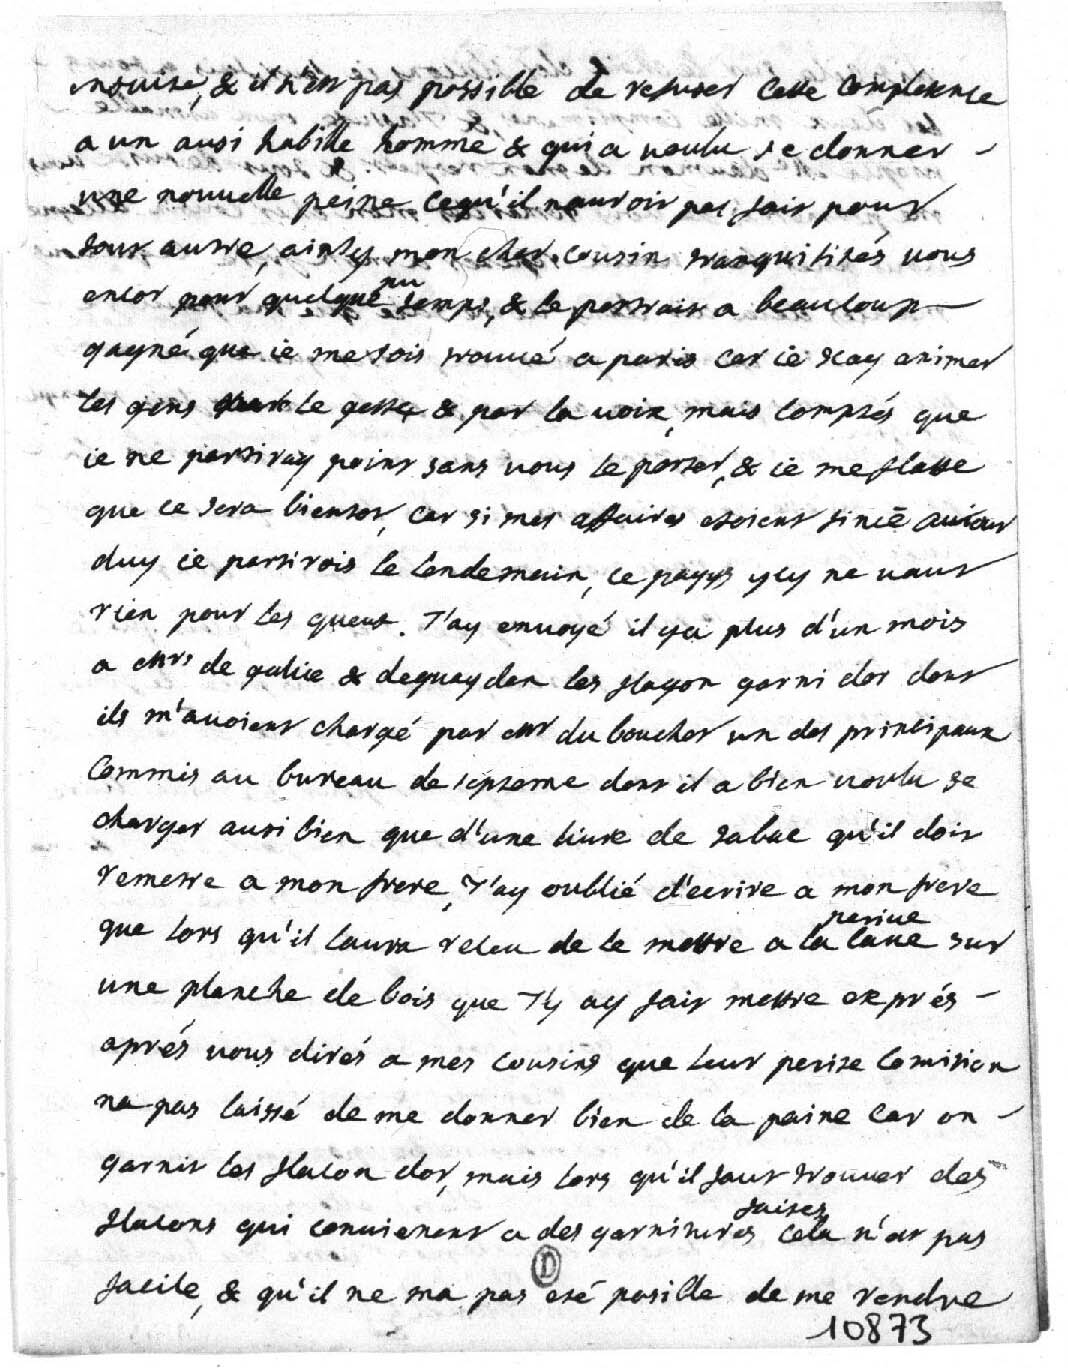 inouise, & il n'est pas possible de refuser cette complesence
a un ausi habille homme & qui a voulu se donner -
une nouvelle peine ce qu'il nauroit pas fait pour
tout autre, ainsy mon cher cousin tranquilisés vous
encor pour quelque temps, & le portrait a beaucoup
gagné que ie me sois trouvé a paris car ie scay animer
les gens le geste & par la voix, mais comptés que
ie ne partiray point sans vous le porter, & ie me flatte
que ce sera bientot, car si mes affaires etoient finie auiour
duy ie partirois le lendemain, ce payys ycy ne vaut
rien pour les queux. J'ay envoyé il y a plus d'un mois
a Mrs de galice & degueydan les flacon garni dor dont
ils m'avoient chargé par Mr du boucher un des principaux
Commis au bureau de septeme dont il a bien voulu se
charger ausi bien que d'une livre de tabac qu'il doit
remettre a mon frere, J'ay oublié d'ecrire a mon frere
petite
que lors qu'il laura receu de le mettre a la cave sur
une planche de bois que J'y ay fait mettre exprés -
aprés vous dirés a mes cousins que leur petite comision
na pas laissé de me donner bien de la peine car on -
garnit les flacon dor, mais lors qu'il faut trouver des
faites
flacons qui convienent a des garnitures cela n'est pas
facile, & qu'il ne ma pas eté posille de me rendre
D
10873